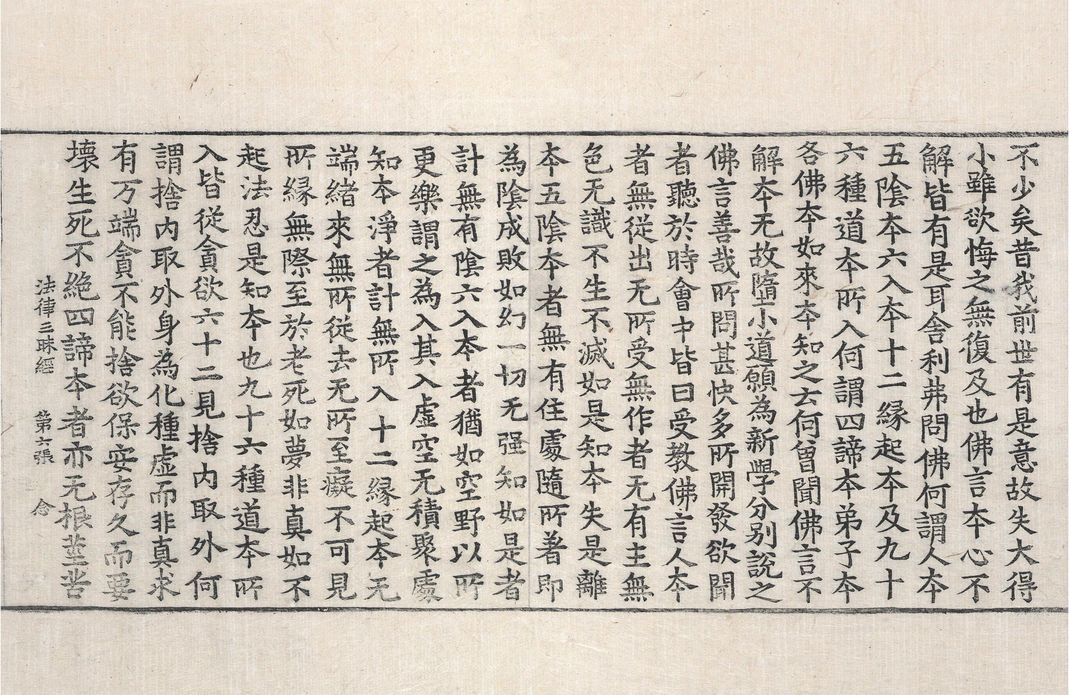 不少矣昔我前世有是意故失大得
小雖欲悔之無復及也佛言本心不
解皆有是耳舍利弗問佛何謂人本
五陰本六入本十二緣起本及九十
六種道本所入何謂四諦本弟子本
各佛本如來本知之云何曾聞佛言不
解本无故隨小道願為新學分別說之
佛言善哉所問甚快多所開發欲聞
者聽於時會中皆曰受教佛言人本
者無從出无所受無作者无有主無
色无識不生不滅如是知本失是離
本五陰本者無有住處隨所著即
為陰成敗如幻一切无强知如是者
計無有陰六入本者猶如空野以所
更樂謂之為入其入虛空无積聚處
知本淨者計無所入十二緣起本无
端緒來無所從去无所至癡不可見
所緣無際至於老死如夢非真如不
起法忍是知本也九十六種道本所
入皆從貪欲六十二見捨內取外何
謂捨內取外身為化種虛而非真求
有万端貪不能捨欲保安存久而要
壞生死不絕四諦本者亦无根莖苦
法律三昧經 第六張 念